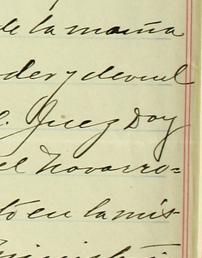 de la maña
der y devuel
Juez Doy
el Navarro=
to en la mis